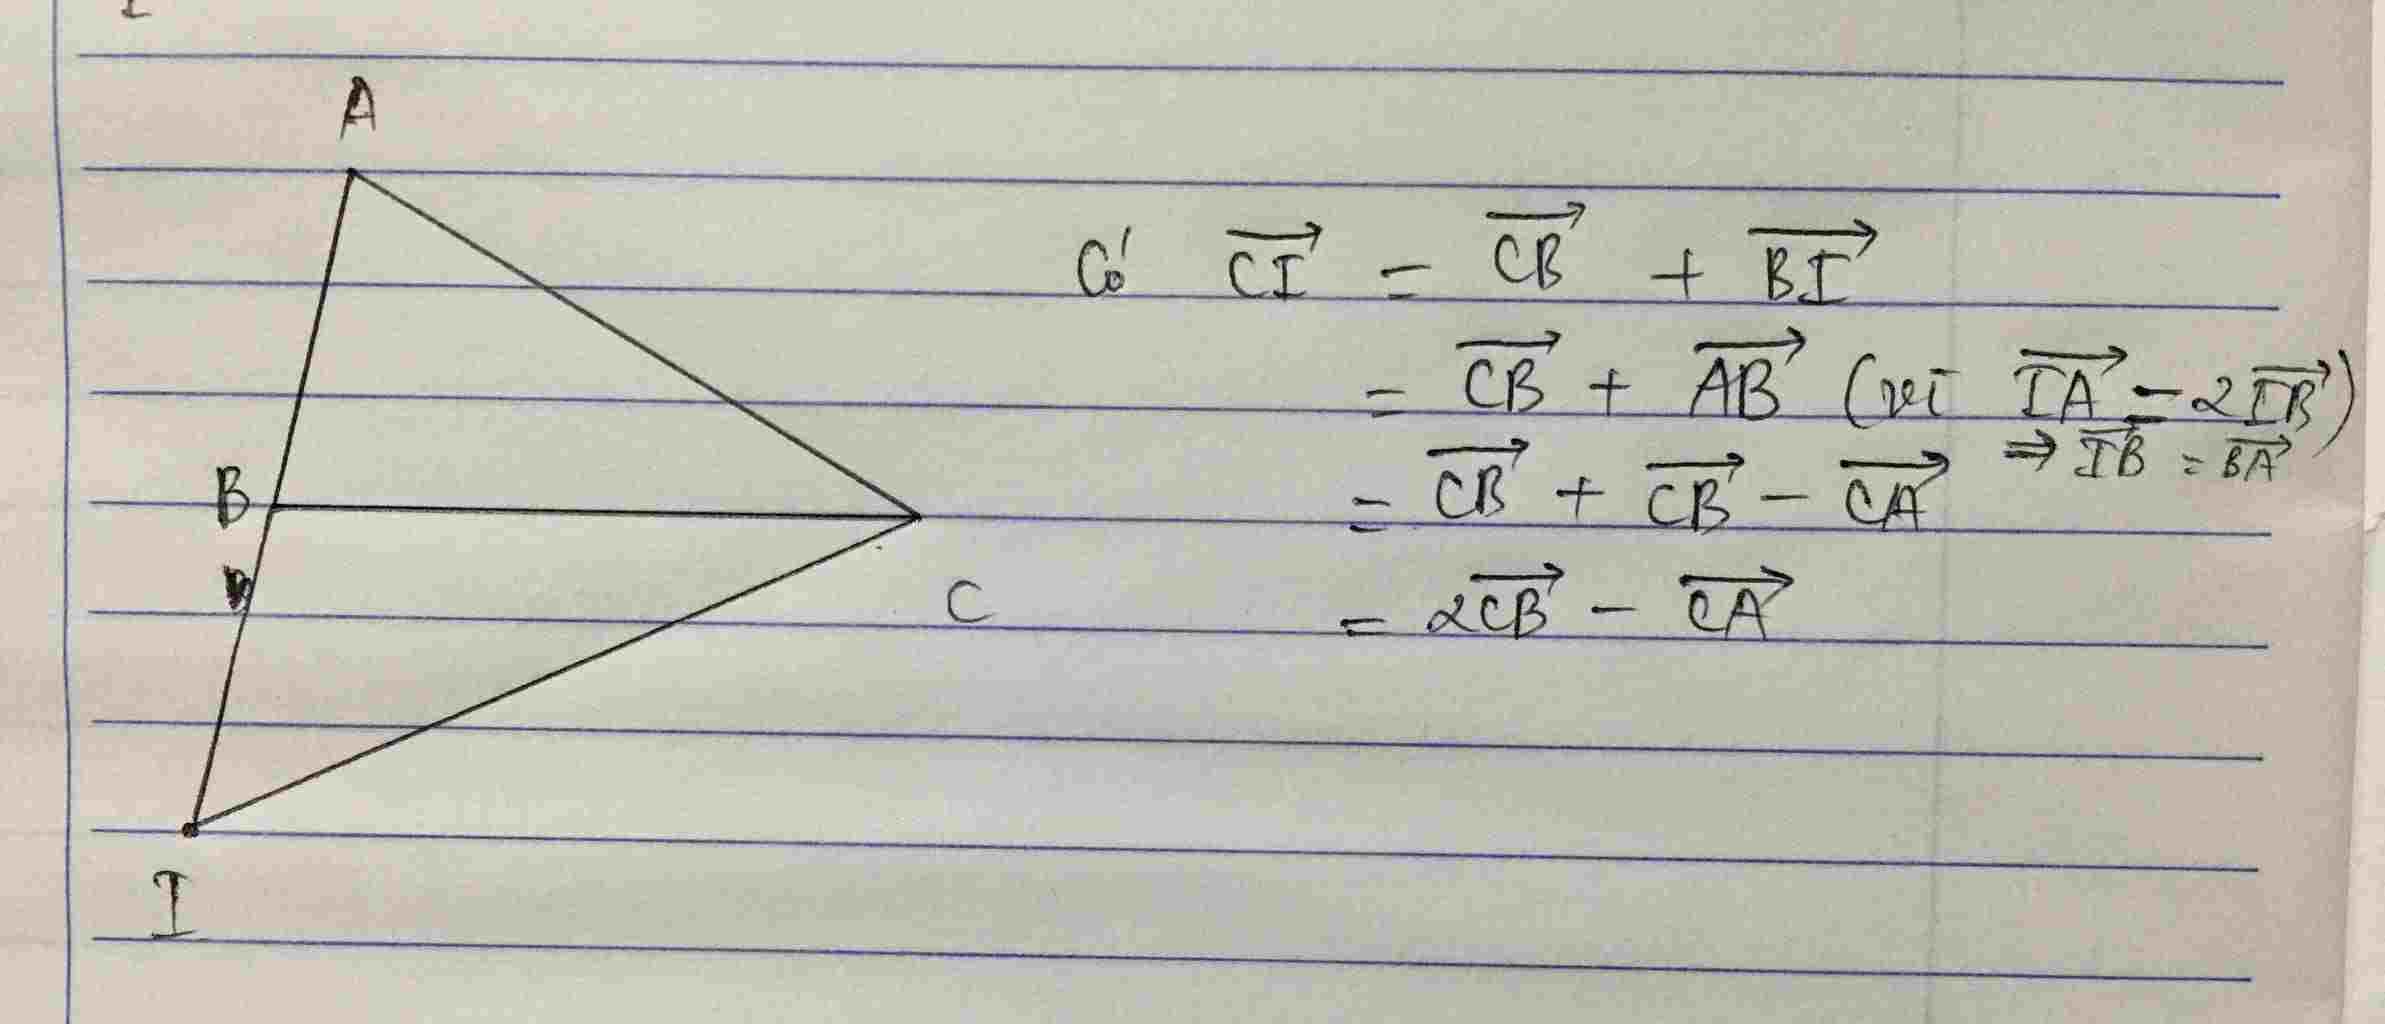 A
Có CI⃗ = CB⃗ + BI⃗
= CB⃗ + AB⃗ (vì IA⃗ = 2IB⃗)
⇒ IB⃗ = BA⃗
= CB⃗ + CB⃗ - CA⃗
B
= 2CB⃗ - CA⃗
C
I